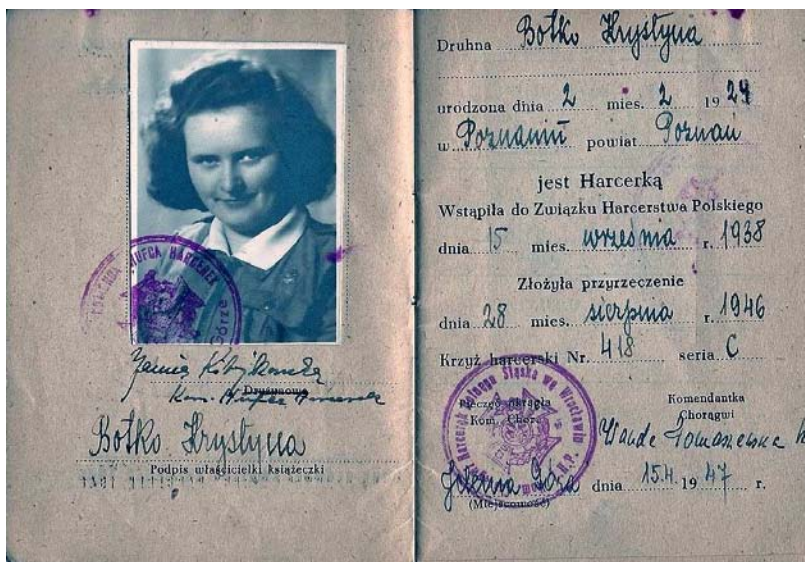 HUFCA HARCEREK
Kom. Hufca Harcerek
Drużynowa
Bołko Krystyna
Podpis właścicielki książeczki
Druhna Bołko Krystyna
urodzona dnia 2 mies. 2 1924
w Poznaniu powiat Poznań
jest Harcerką
Wstąpiła do Związku Harcerstwa Polskiego
dnia 15 mies. września r. 1938
Złożyła przyrzeczenie
dnia 28 mies. sierpnia r. 1946
Krzyż harcerski Nr. 418 seria C
Pieczęć okrągła
Kom. Chorą
Komendantka
Chorągwi
Harcerek Dolnego Śląska we Wrocławiu
Z.H.P.
Wanda Tomaszewska
Jelenia Góra dnia 15.4. 1947 r.
(Miejscowość)